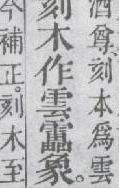 酒尊。刻本爲雲
刻木作雲靁象。
今補正。刻木至